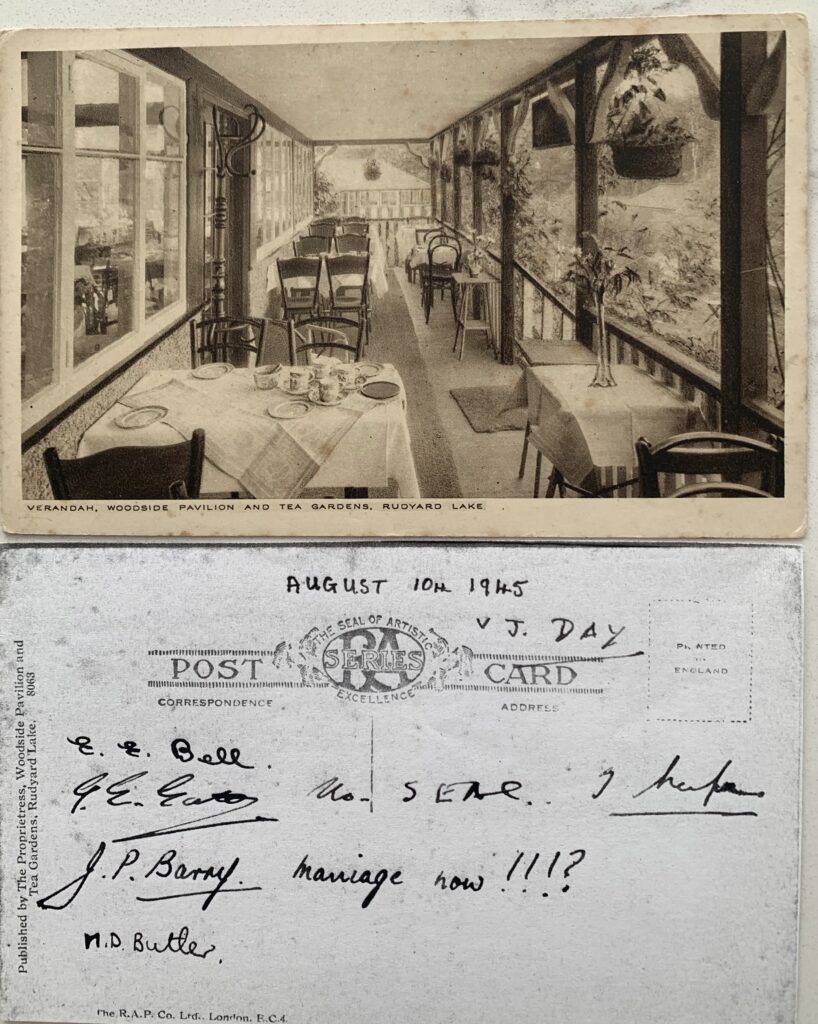 VERANDAH, WOODSIDE PAVILION AND TEA GARDENS, RUDYARD LAKE.
AUGUST 10TH 1945
V J. DAY
THE SEAL OF ARTISTIC
RA
SERIES
EXCELLENCE
POST CARD
CORRESPONDENCE
ADDRESS
PRINTED
IN
ENGLAND
E. E. Bell.
G. E.
No - SEAC.. I
J. P. Barry. marriage now !!!?
M. D. Butler.
Published by The Proprietress, Woodside Pavilion and
Tea Gardens, Rudyard Lake. 8063
The R.A.P. Co. Ltd., London, E.C.4.